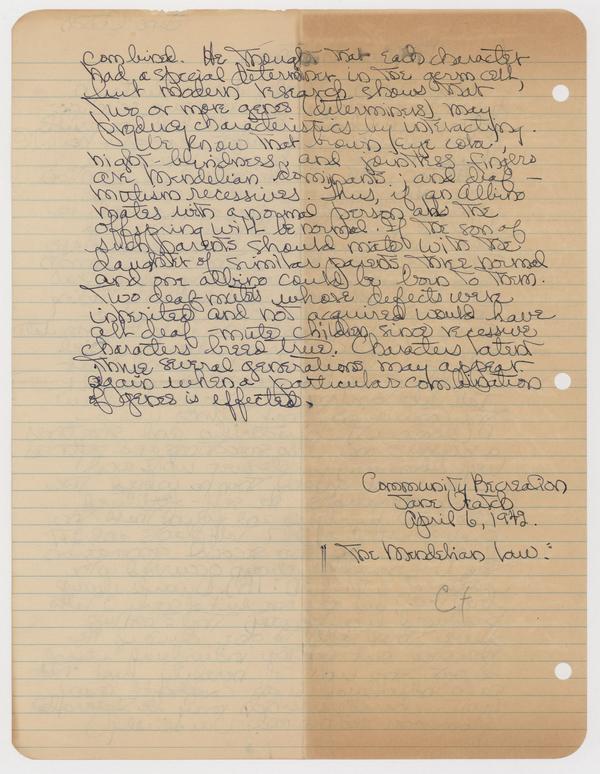 combined. He thought that each character
had a special determiner in the germ cell,
but modern research shows that
two or more genes (determiners) may
produce characteristics by interacting.
We know that brown eye color,
night-blindness, and jointless fingers
are Mendelian dominants; and deaf-
mutism recessives. Thus, if an albino
mates with a normal person all the
offspring will be normal. If the son of
such parents should mate with the
daughter of similar parents three normal
and one albino could be born to them.
Two deaf mutes whose defects were
inherited and not acquired would have
all deaf-mute children since recessive
characters breed true. Characters latent
three several generations may appear
again when a particular combination
of genes is effected.
Community Recreation
Jane
April 6, 1942.
"The Mendelian Law":
C+